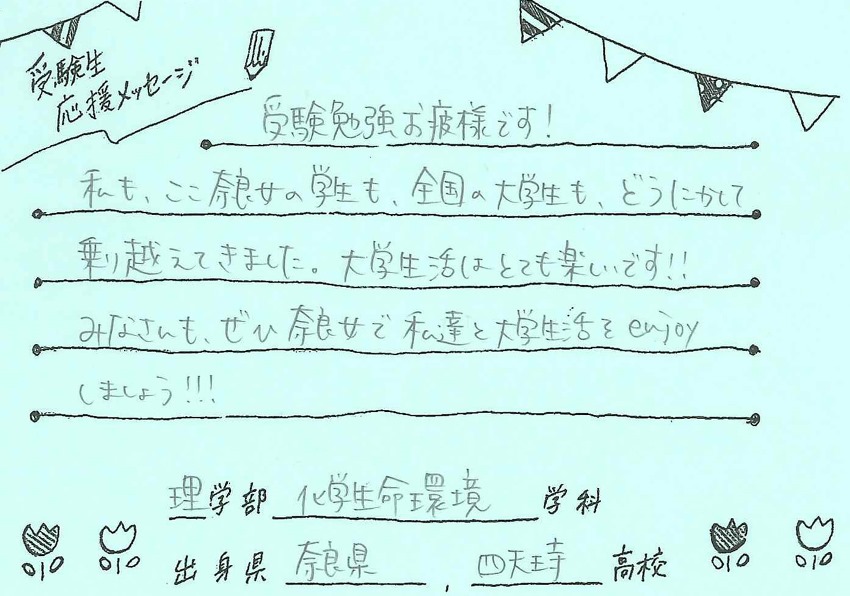 受験生
応援メッセージ
受験勉強お疲様です!
私も、ここ奈良女の学生も、全国の大学生も、どうにかして
乗り越えてきました。大学生活はとても楽しいです!!
みなさんも、ぜひ奈良女で私達と大学生活をenjoy
しましょう!!!
理学部 化学生命環境 学科
出身県 奈良県 , 四天王寺 高校